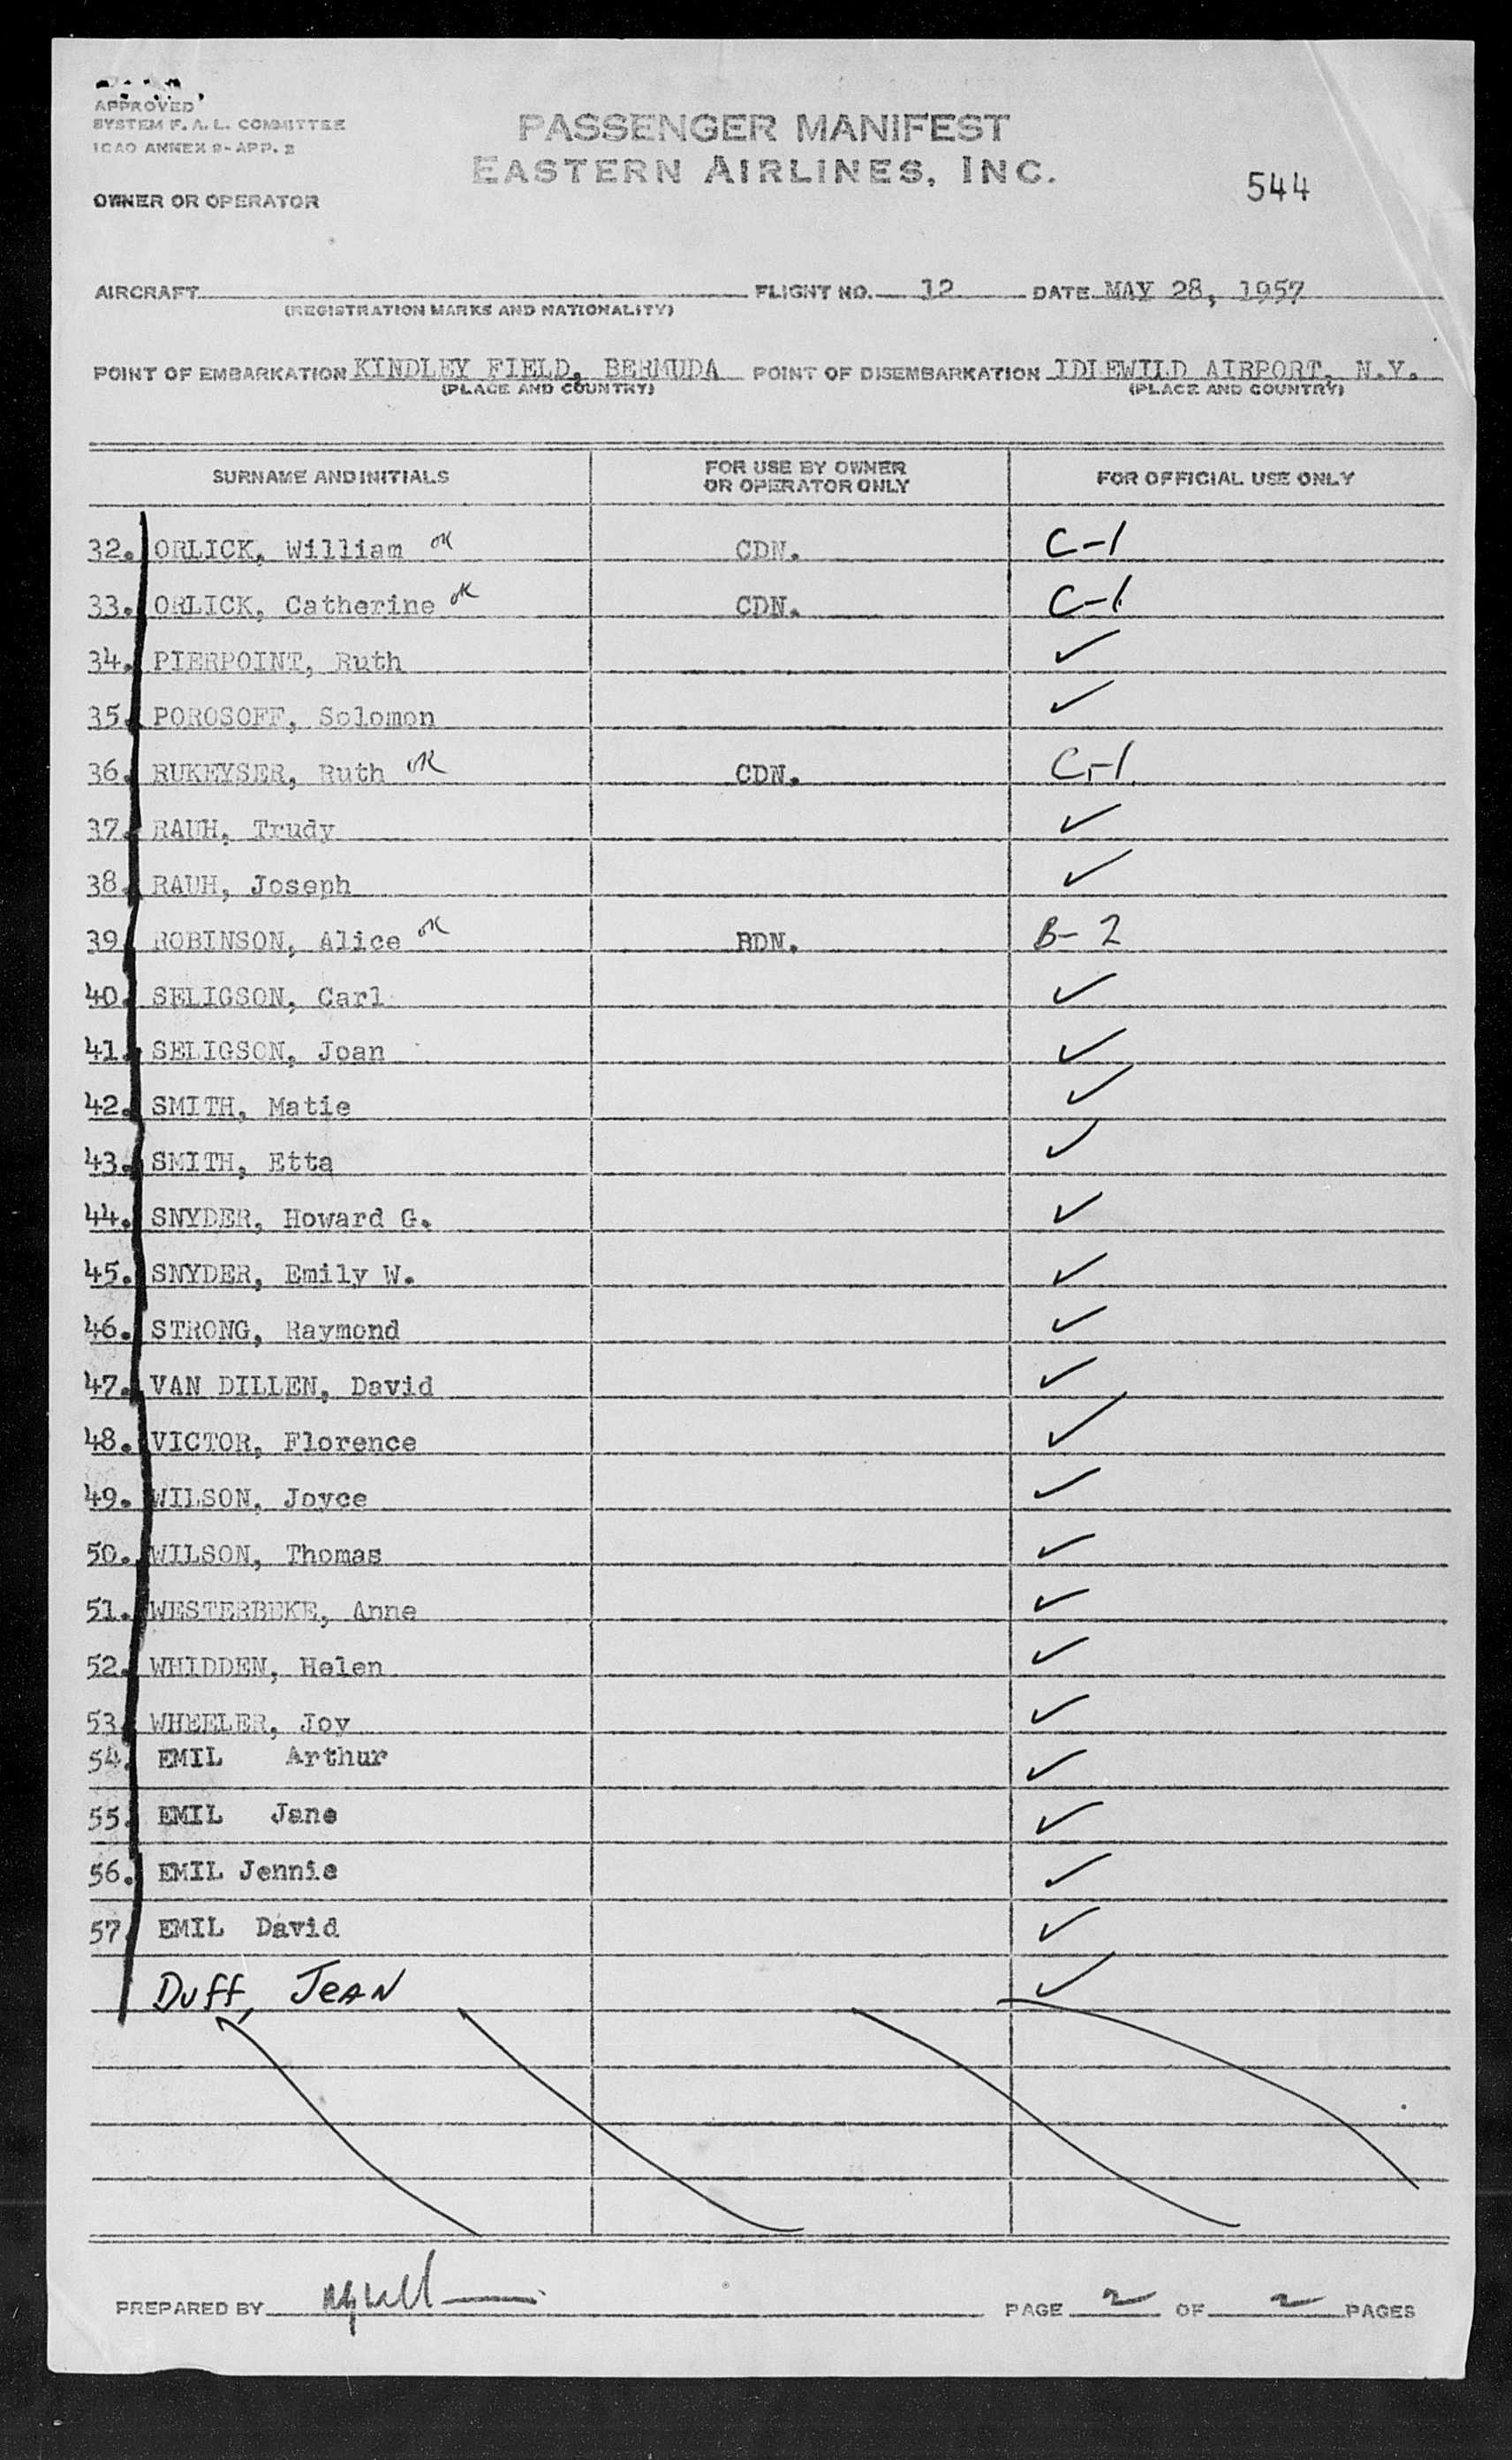 APPROVED
SYSTEM F. A. L. COMMITTEE
ICAO ANNEX 9-APP. 2
PASSENGER MANIFEST
EASTERN AIRLINES, INC.
544
OWNER OR OPERATOR
AIRCRAFT FLIGHT NO. 12 DATE MAY 28, 1957
(REGISTRATION MARKS AND NATIONALITY)
POINT OF EMBARKATION KINDLEY FIELD, BERMUDA POINT OF DISEMBARKATION IDLEWILD AIRPORT, N.Y.
(PLACE AND COUNTRY) (PLACE AND COUNTRY)
SURNAME AND INITIALS FOR USE BY OWNER OR OPERATOR ONLY FOR OFFICIAL USE ONLY
32. ORLICK, William OK CDN. C-1
33. ORLICK, Catherine OK CDN. C-1
34. PIERPOINT, Ruth ✓
35. POROSOFF, Solomon ✓
36. RUKEYSER, Ruth OK CDN. C-1
37. RAUH, Trudy ✓
38. RAUH, Joseph ✓
39. ROBINSON, Alice OK BDN. B-2
40. SELIGSON, Carl ✓
41. SELIGSON, Joan ✓
42. SMITH, Matie ✓
43. SMITH, Etta ✓
44. SNYDER, Howard G. ✓
45. SNYDER, Emily W. ✓
46. STRONG, Raymond ✓
47. VAN DILLEN, David ✓
48. VICTOR, Florence ✓
49. WILSON, Joyce ✓
50. WILSON, Thomas ✓
51. WESTERBEKE, Anne ✓
52. WHIDDEN, Helen ✓
53. WHEELER, Joy ✓
54. EMIL Arthur ✓
55. EMIL Jane ✓
56. EMIL Jennie ✓
57. EMIL David ✓
Duff, JeAN ✓
PREPARED BY PAGE 2 OF 2 PAGES